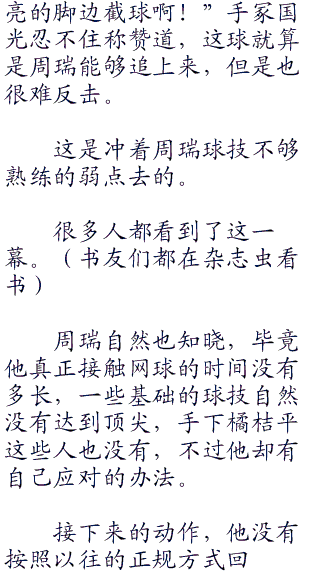 亮的脚边截球啊！”手冢国
光忍不住称赞道，这球就算
是周瑞能够追上来，但是也
很难反击。
这是冲着周瑞球技不够
熟练的弱点去的。
很多人都看到了这一
幕。（书友们都在杂志虫看
书）
周瑞自然也知晓，毕竟
他真正接触网球的时间没有
多长，一些基础的球技自然
没有达到顶尖，手下橘桔平
这些人也没有，不过他却有
自己应对的办法。
接下来的动作，他没有
按照以往的正规方式回